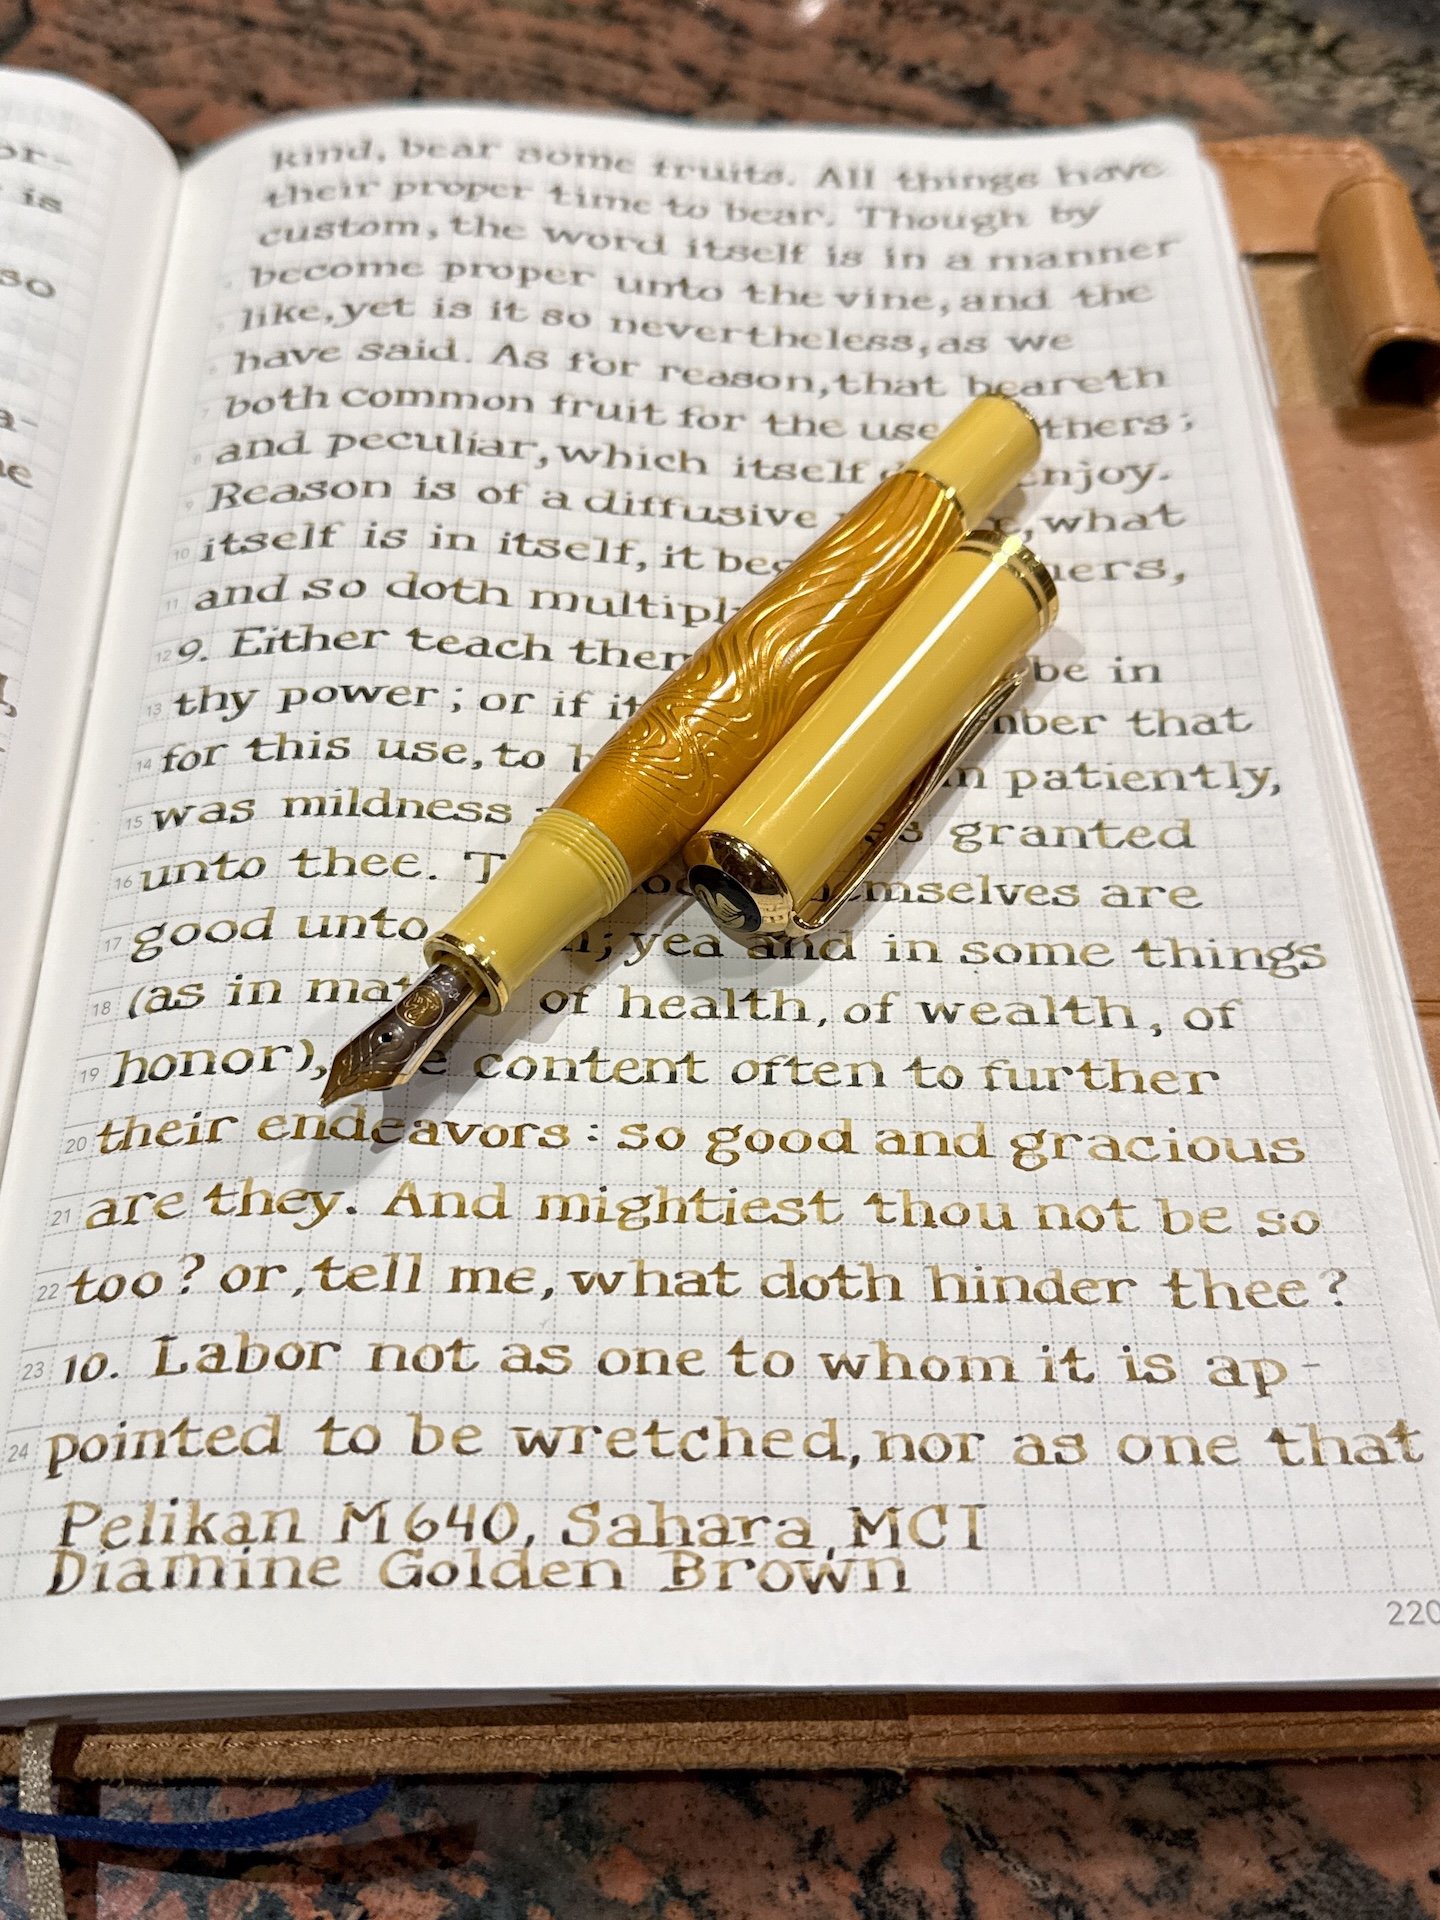 or-
is
so
a-
kind, bear some fruits. All things have
their proper time to bear. Though by
custom, the word itself is in a manner
become proper unto the vine, and the
like, yet is it so nevertheless, as we
have said. As for reason, that beareth
both common fruit for the use thers;
and peculiar, which itself enjoy.
Reason is of a diffusive what
10 itself is in itself, it
11 and so doth
12 9. Either teach be in
13 thy power; or if that
14 for this use, to patiently,
15 was mildness
16 unto thee. granted
17 good unto emselves are
yea and in some things
18 (as in of health, of wealth, of
19 honor), content often to further
20 their endeavors: so good and gracious
21 are they. And mightiest thou not be so
22 too? or, tell me, what doth hinder thee?
23 10. Labor not as one to whom it is ap-
24 pointed to be wretched, nor as one that
Pelikan M640, Sahara, MCI
Diamine Golden Brown
220